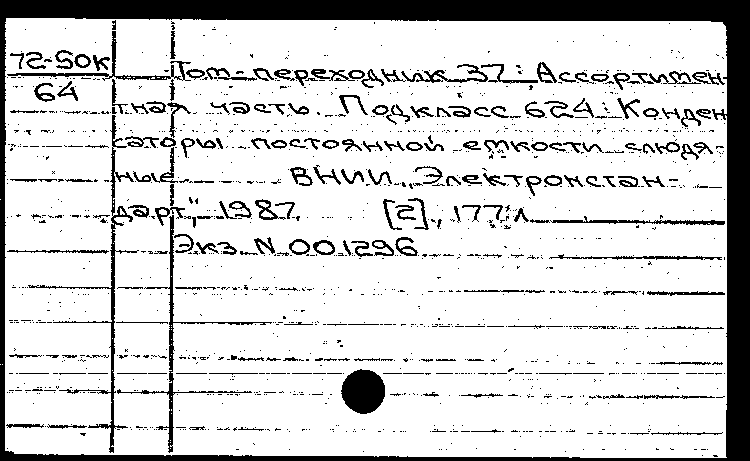 72-50к
64
Том-переходник 37: Ассортимен-
тная часть. Подкласс 624: Конден
саторы постоянной емкости слюдя-
ные ВНИИ „Электронстан-
дарт", 1987. [2], 177 л
Экз. N 001296